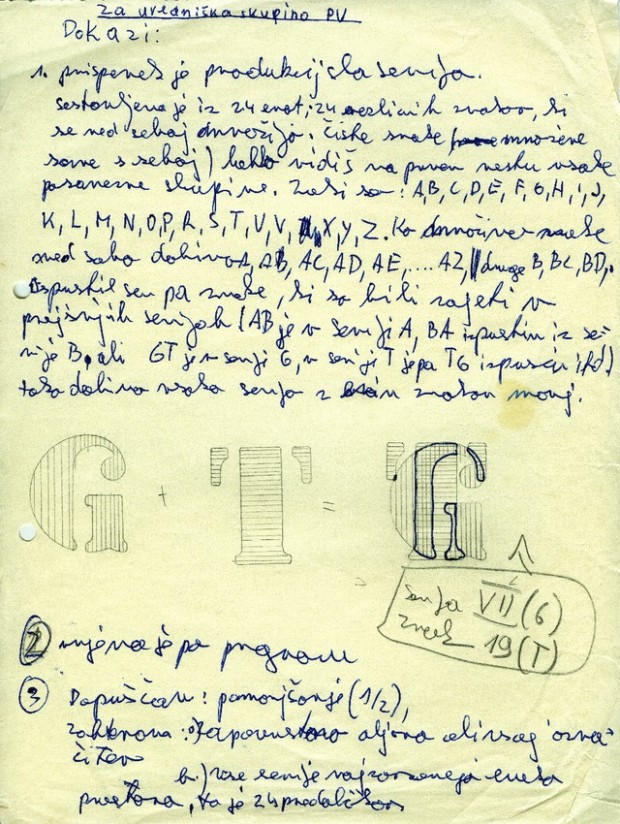 za uredniško skupino PV
Dokazi:
1. prispevek je produkcijsla serija.
sestavljena je iz 24 enot, 24 različnih znakov, ki
se med seboj množijo. Čiste znake množene
same s seboj) lahko vidiš na prvem mestu vsake
posamezne skupine. Znaki so: A, B, C, D, E, F, G, H, I, J,
K, L, M, N, O, P, R, S, T, U, V, X, Y, Z. Ko množimo znake
med sabo dobimo A, AB, AC, AD, AE, .... AZ, druge B, BC, BD,.
Izpustil sem pa znake, ki so bili zajeti v
prejšnjih serijah (AB je v seriji A, BA izpustim iz se-
rije B, ali GT je v seriji G, v seriji T je pa TG izpuščen itd)
tako dobimo vsaka serija z enim znakom manj.
G + T = G
serija VII (G)
znak 19 (T)
2 njena je pa program
3 Dopuščam: pomanjšanje (1/2),
zahtevana: a) zapovrstno ali
čitev
b.) vse serije naj zavzemajo enega
prostora, to je 24 predalčkov